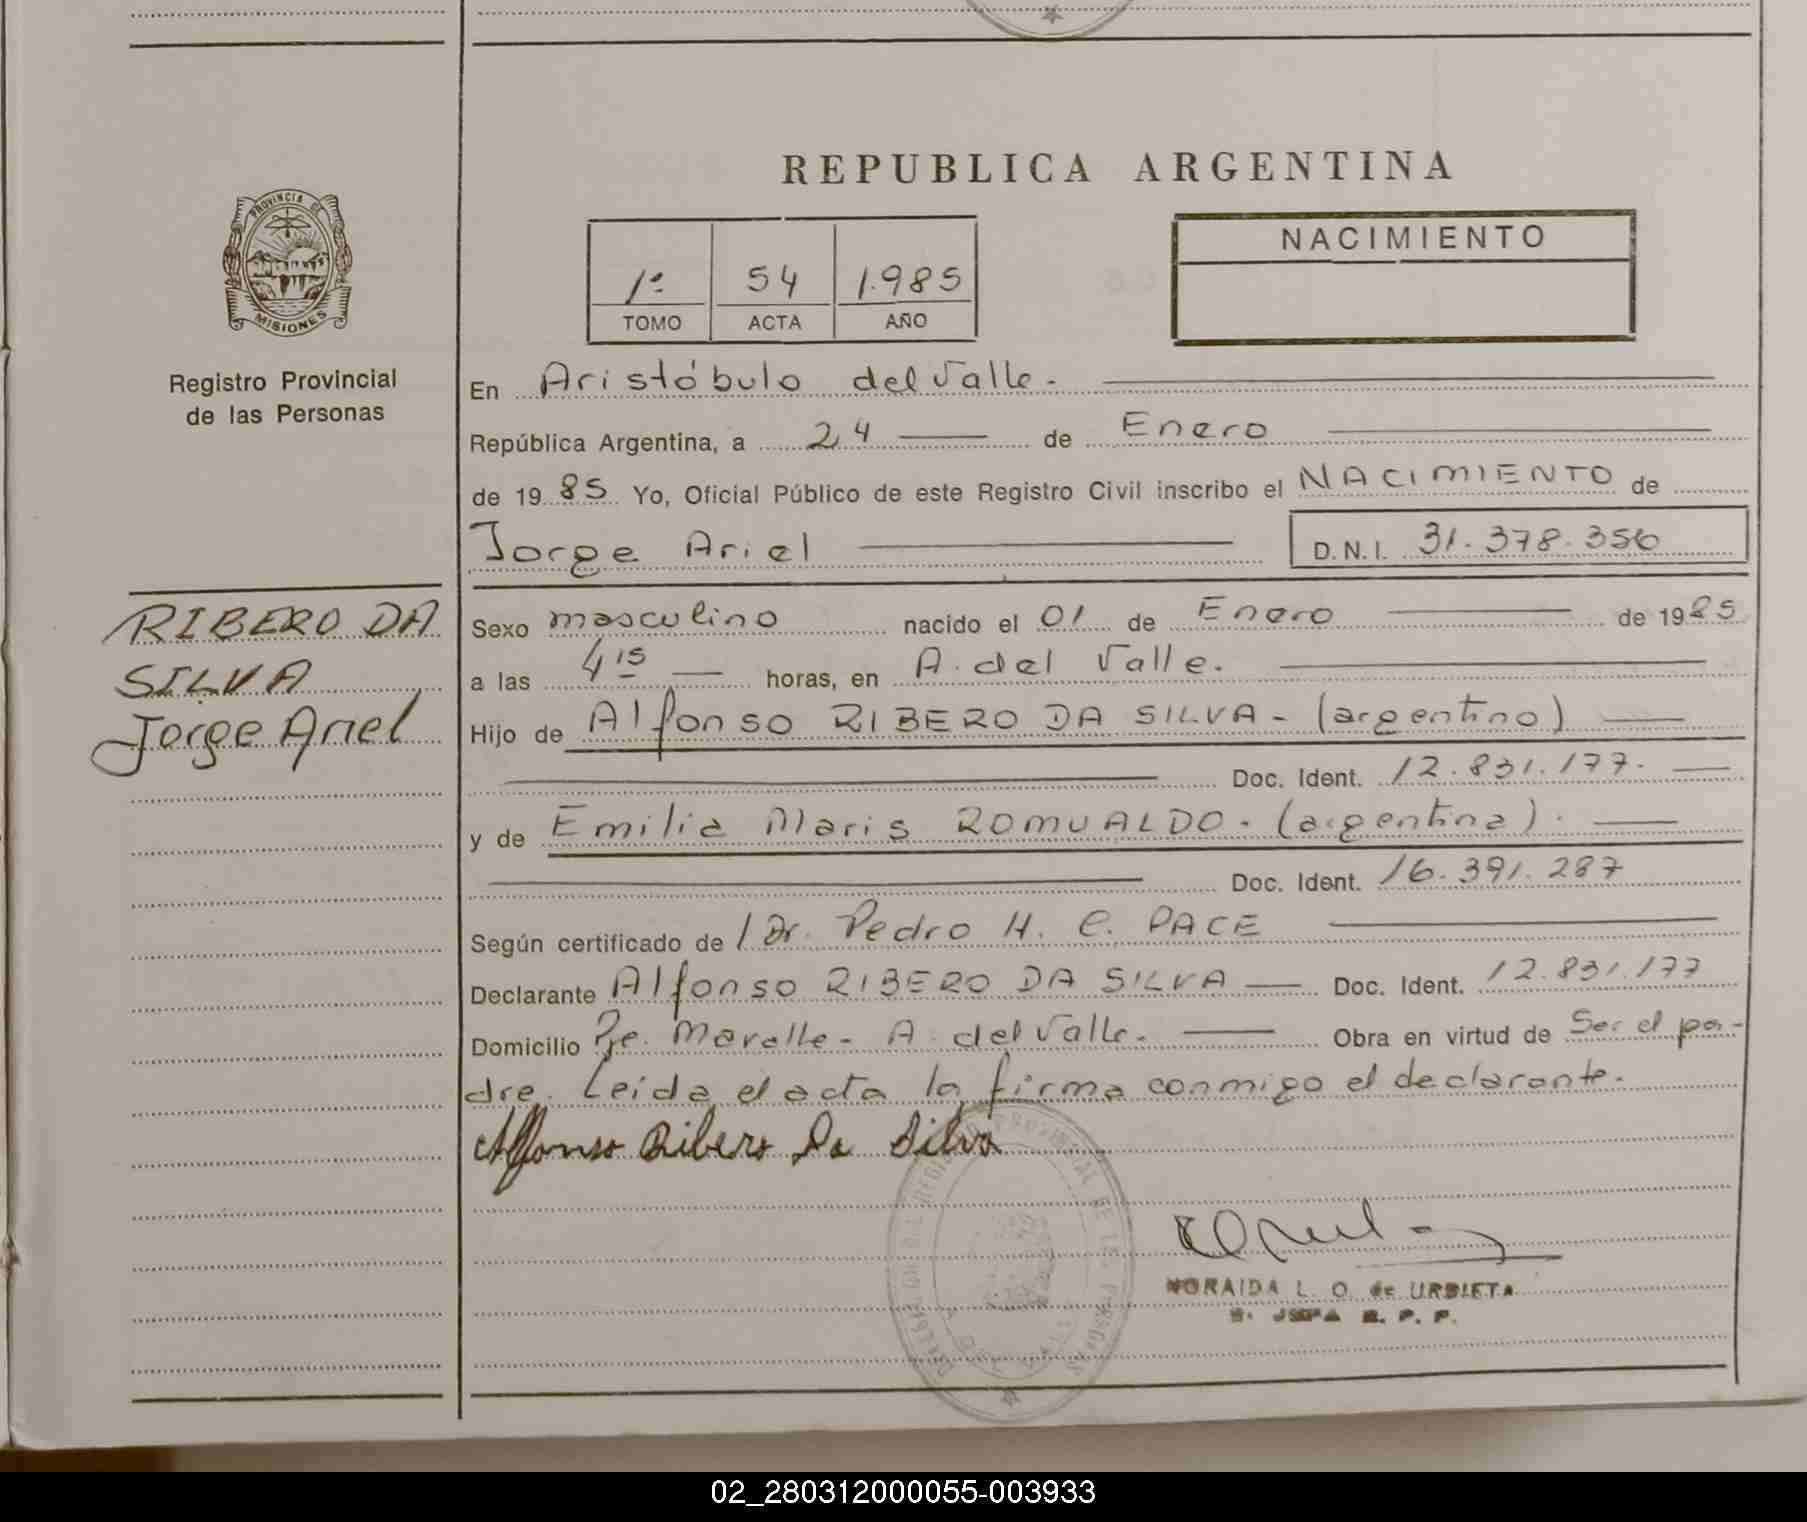 REPUBLICA ARGENTINA
PROVINCIA DE
MISIONES
Registro Provincial
de las Personas
1º 54 1.985
TOMO ACTA AÑO
NACIMIENTO
En Aristóbulo del Valle.
República Argentina, a 24 de Enero
de 1985 Yo, Oficial Público de este Registro Civil inscribo el NACIMIENTO de
Jorge Ariel D.N.I. 31.378.356
RIBERO DA
SILVA
Jorge Ariel
Sexo masculino nacido el 01 de Enero de 1985
a las 4 15 horas, en A. del Valle.
Hijo de Alfonso RIBERO DA SILVA - (argentino)
Doc. Ident. 12.831.177.
y de Emilia Maris ROMUALDO - (argentina).
Doc. Ident. 16.391.287
Según certificado de Dr. Pedro H. C. PACE
Declarante Alfonso RIBERO DA SILVA Doc. Ident. 12.831.177
Domicilio A. del Valle. Obra en virtud de Ser el pa-
dre. Leida el acta la firma conmigo el declarante.
Alfonso Ribero Da Silva
NORAIDA L. O. de URBIETA
02_280312000055-003933